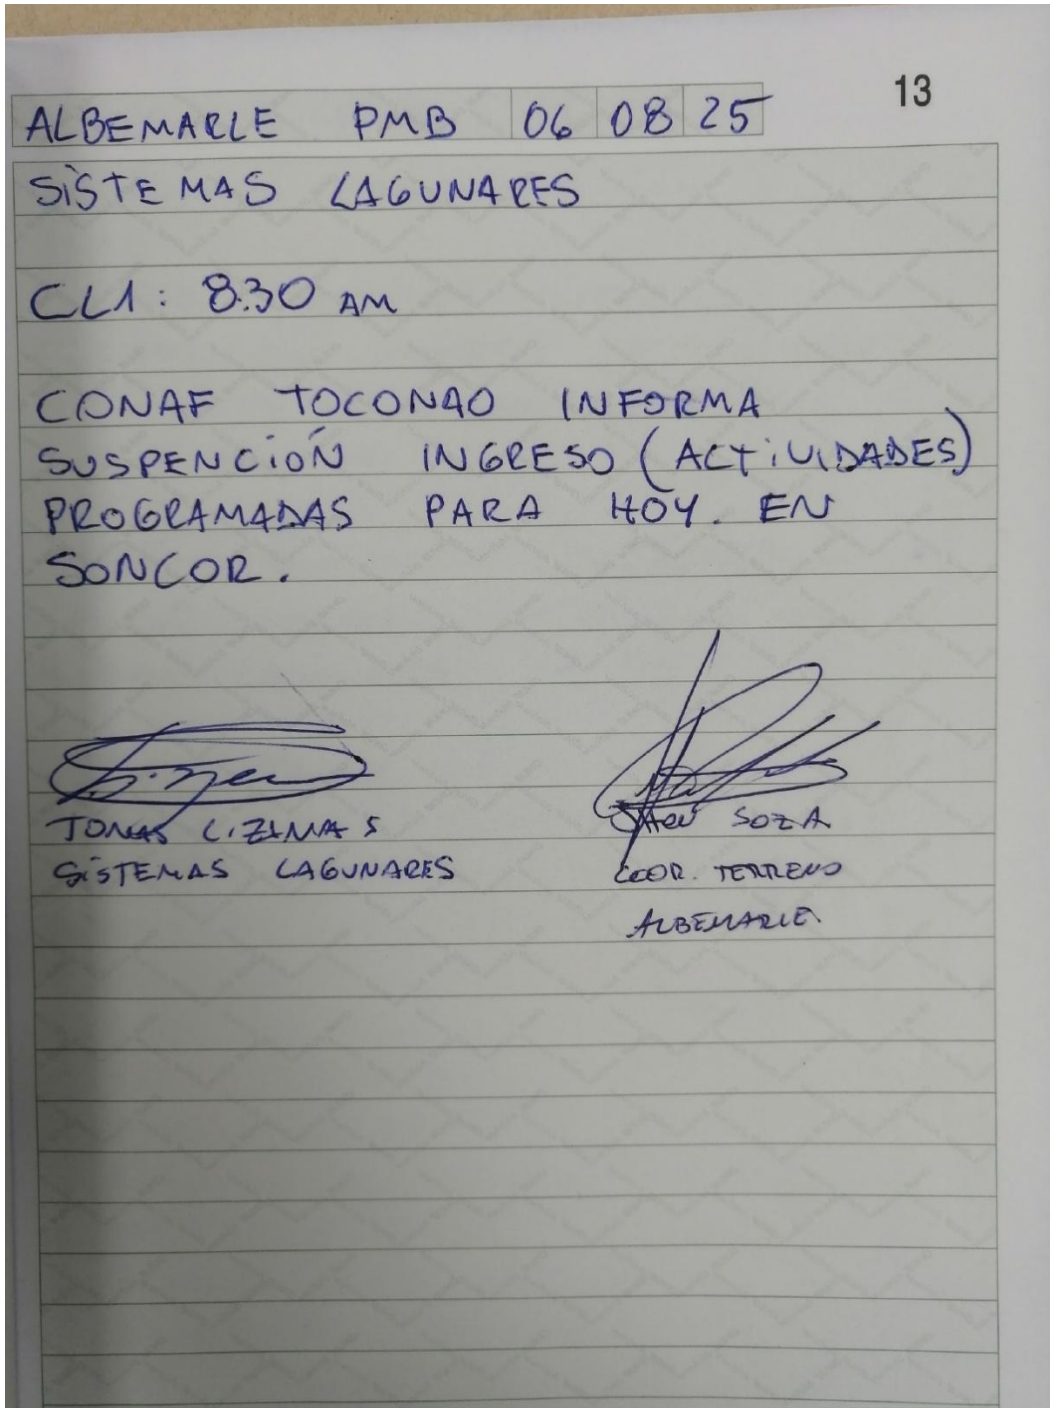 13
ALBEMARLE PMB 06 08 25
SISTEMAS LAGUNARES
CL1: 8:30 AM
CONAF TOCONAO INFORMA
SUSPENCIÓN INGRESO (ACTIVIDADES)
PROGRAMADAS PARA HOY. EN
SONCOR.
TOMAS LIZAMA S
SISTEMAS LAGUNARES
SOZA
COOR. TERRENO
ALBEMARLE.